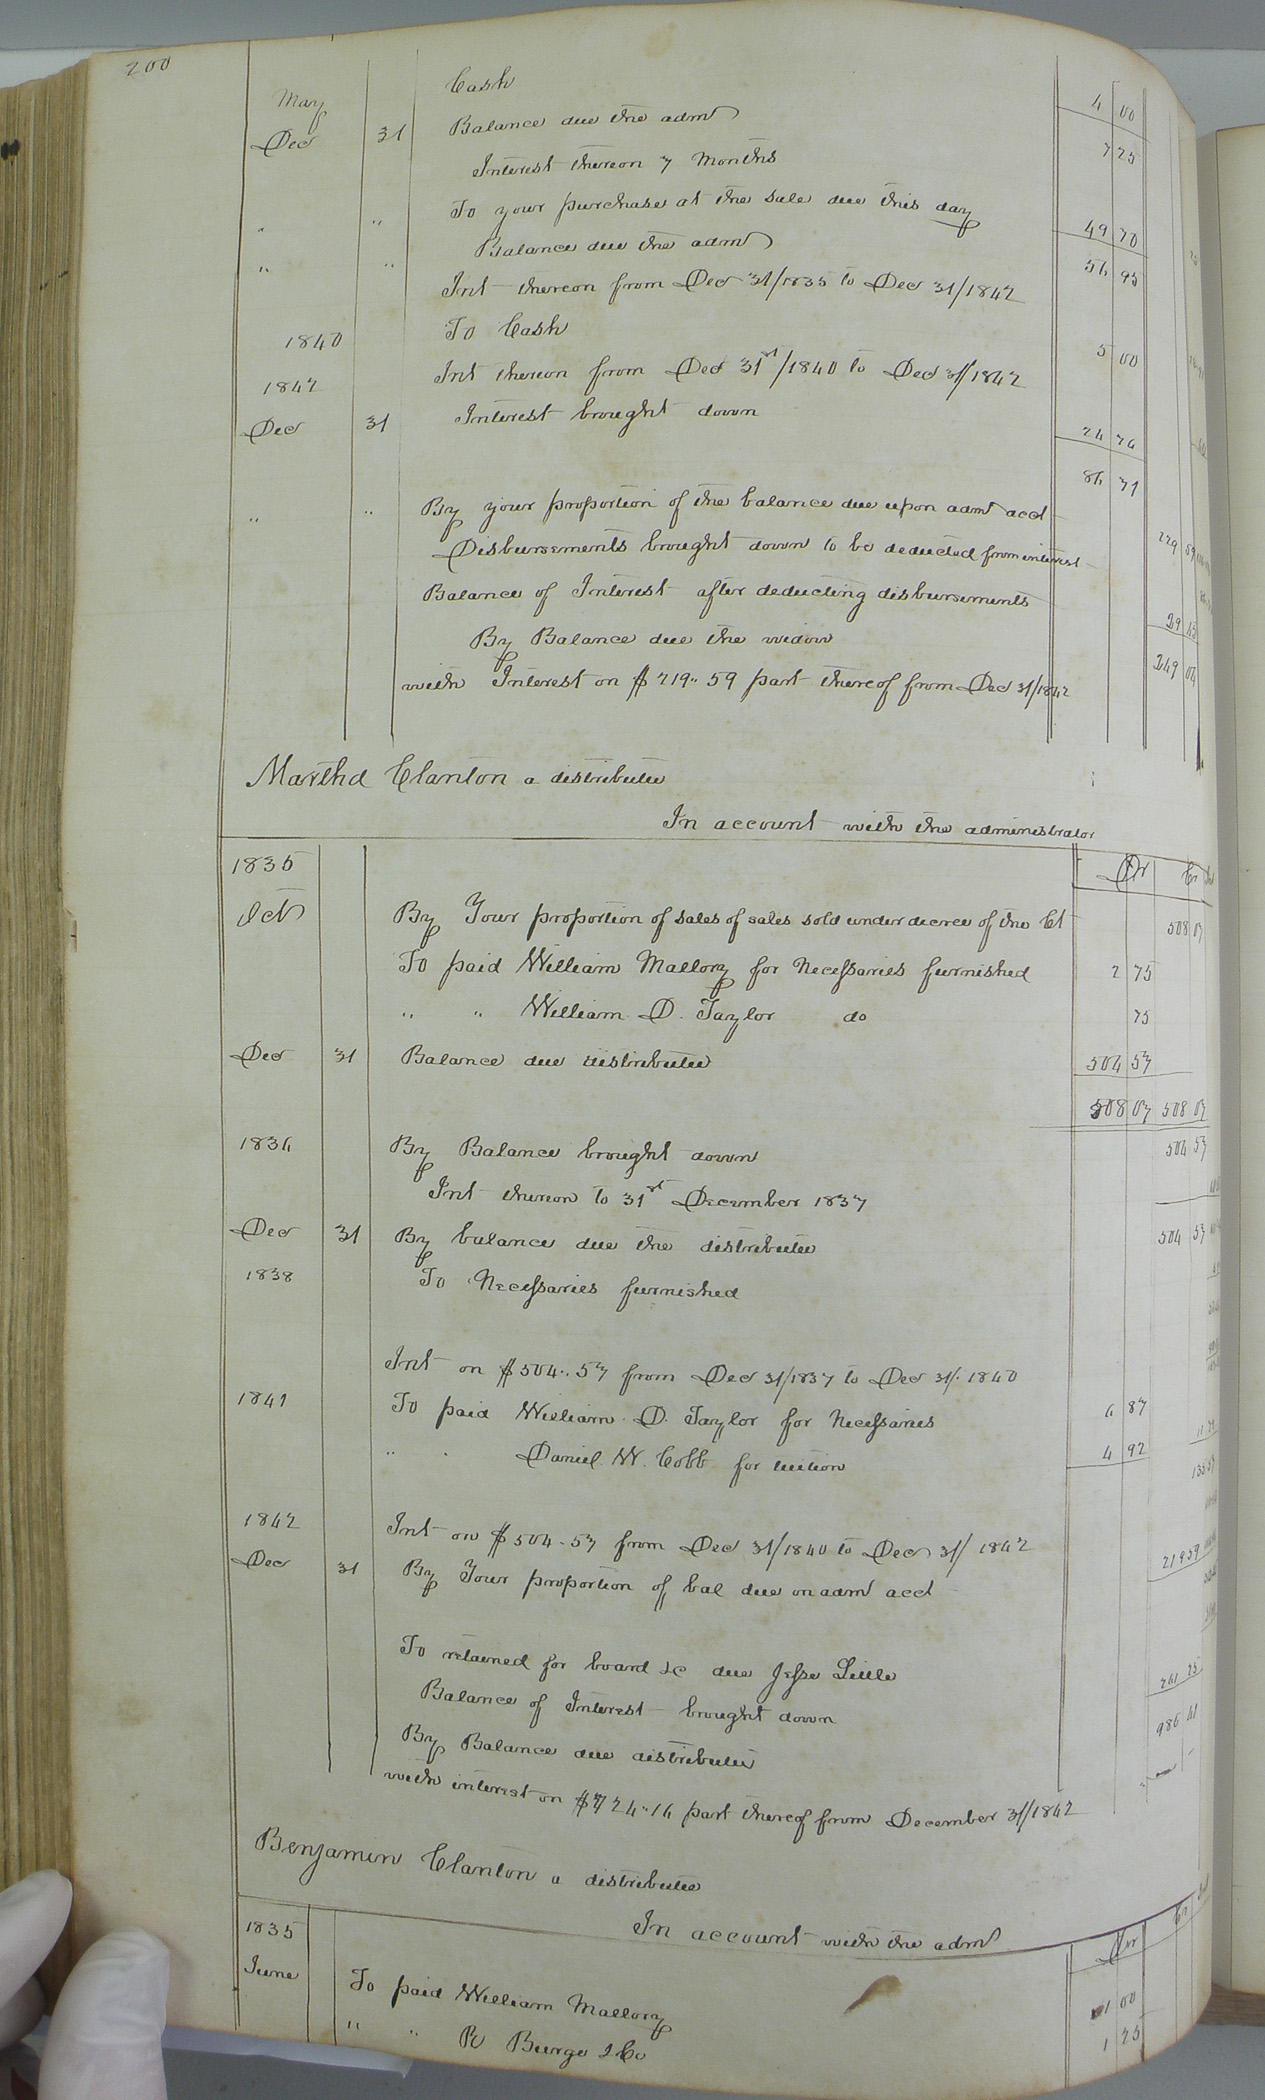 200
Cash
May 4 00
Dec 31 Balance due the admr 7 25
Interest thereon 7 Months
" " To your purchase at the sale due this day 49 70
" " Balance due the admr 56 95
Int thereon from Dec 31/1835 to Dec 31/1842
1840 To Cash 5 00
1842 Int thereon from Dec 31st/1840 to Dec 31/1842
Dec 31 Interest brought down 24 76
86 71
" " By your proportion of the balance due upon admr acct 219 59
Disbursements brought down to be deducted from interest
Balance of Interest after deducting disbursements 29 45
By Balance due the widow 249 04
with Interest on $219"59 part thereof from Dec 31/1842
Martha Clanton a distributee
In account with the administrator
1835 Dr Cr
Oct By Your proportion of sales of sales sold under decree of the Ct 508 07
To paid William Mallory for Necessaries furnished 2 75
" " William D. Taylor do 75
Dec 31 Balance due distributee 504 57
508 07 508 07
1836 By Balance brought down 504 57
Int thereon to 31st December 1837
Dec 31 By balance due the distributee 504 57
1838 To Necessaries furnished
Int on $504"57 from Dec 31/1837 to Dec 31/1840
1841 To paid William D. Taylor for Necessaries 6 87
" " Daniel W. Cobb for tuition 4 92
1842 Int on $504-57 from Dec 31/1840 to Dec 31/1842
Dec 31 By Your proportion of bal due on admr acct 219 59
To retained for board &c due Jesse Little
Balance of Interest brought down 261 25
By Balance due distributee 985 41
with interest on $724"16 part thereof from December 31/1842
Benjamin Clanton a distributee
In account with the admr
1835 Dr Cr
June To paid William Mallory 1 00
" " R Burge & Co 1 25